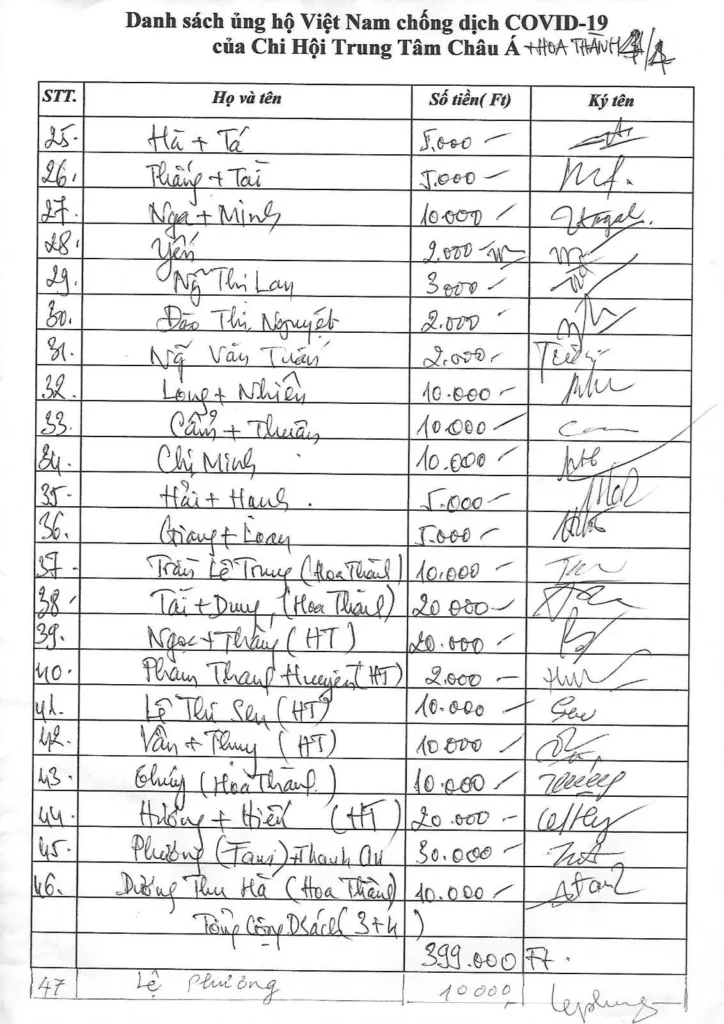 Danh sách ủng hộ Việt Nam chống dịch COVID-19
của Chi Hội Trung Tâm Châu Á + HOA THÀNH
STT. Họ và tên Số tiền( Ft) Ký tên
25. Hà + Tá 5.000 –
26. Thắng + Tài 5.000 –
27. Nga + Minh 10.000 –
28. Yến 2.000 –
29. Ng̃ Thi Lan 3000 –
30. Đào Thị Nguyệt 2.000 –
31. Ng̃ Văn Tuấn 2.000,-
32. Long + Nhiên 10.000 –
33. Cẩm + Thuân 10.000 –
34. Chị Minh 10.000 –
35. Hải + Hạnh. 5.000 –
36. Giang + Loan 5.000 –
37. Trần Lê Trung (Hoa Thành) 10.000 –
38. Tài + Dung, (Hoa Thành) 20 000 –
39. Ngọc + Thắng (HT) 20.000 –
40. Phạm Thanh Huyền (HT) 2.000 –
41. Lê Thị Sen (HT) 10.000 – Sen
42. Vân + Thuy (HT) 10.000 –
43. Thúy (Hoa Thành) 10.000 –
44. Hương + Hiến (HT) 20.000 –
45. Phương (Fani) + Thanh An 30.000 –
46. Dương Thu Hà (Hoa Thành) 10.000 –
Tổng Cộng DSách (3+4)
399.000 Ft.
47 Lệ Phương 10000,